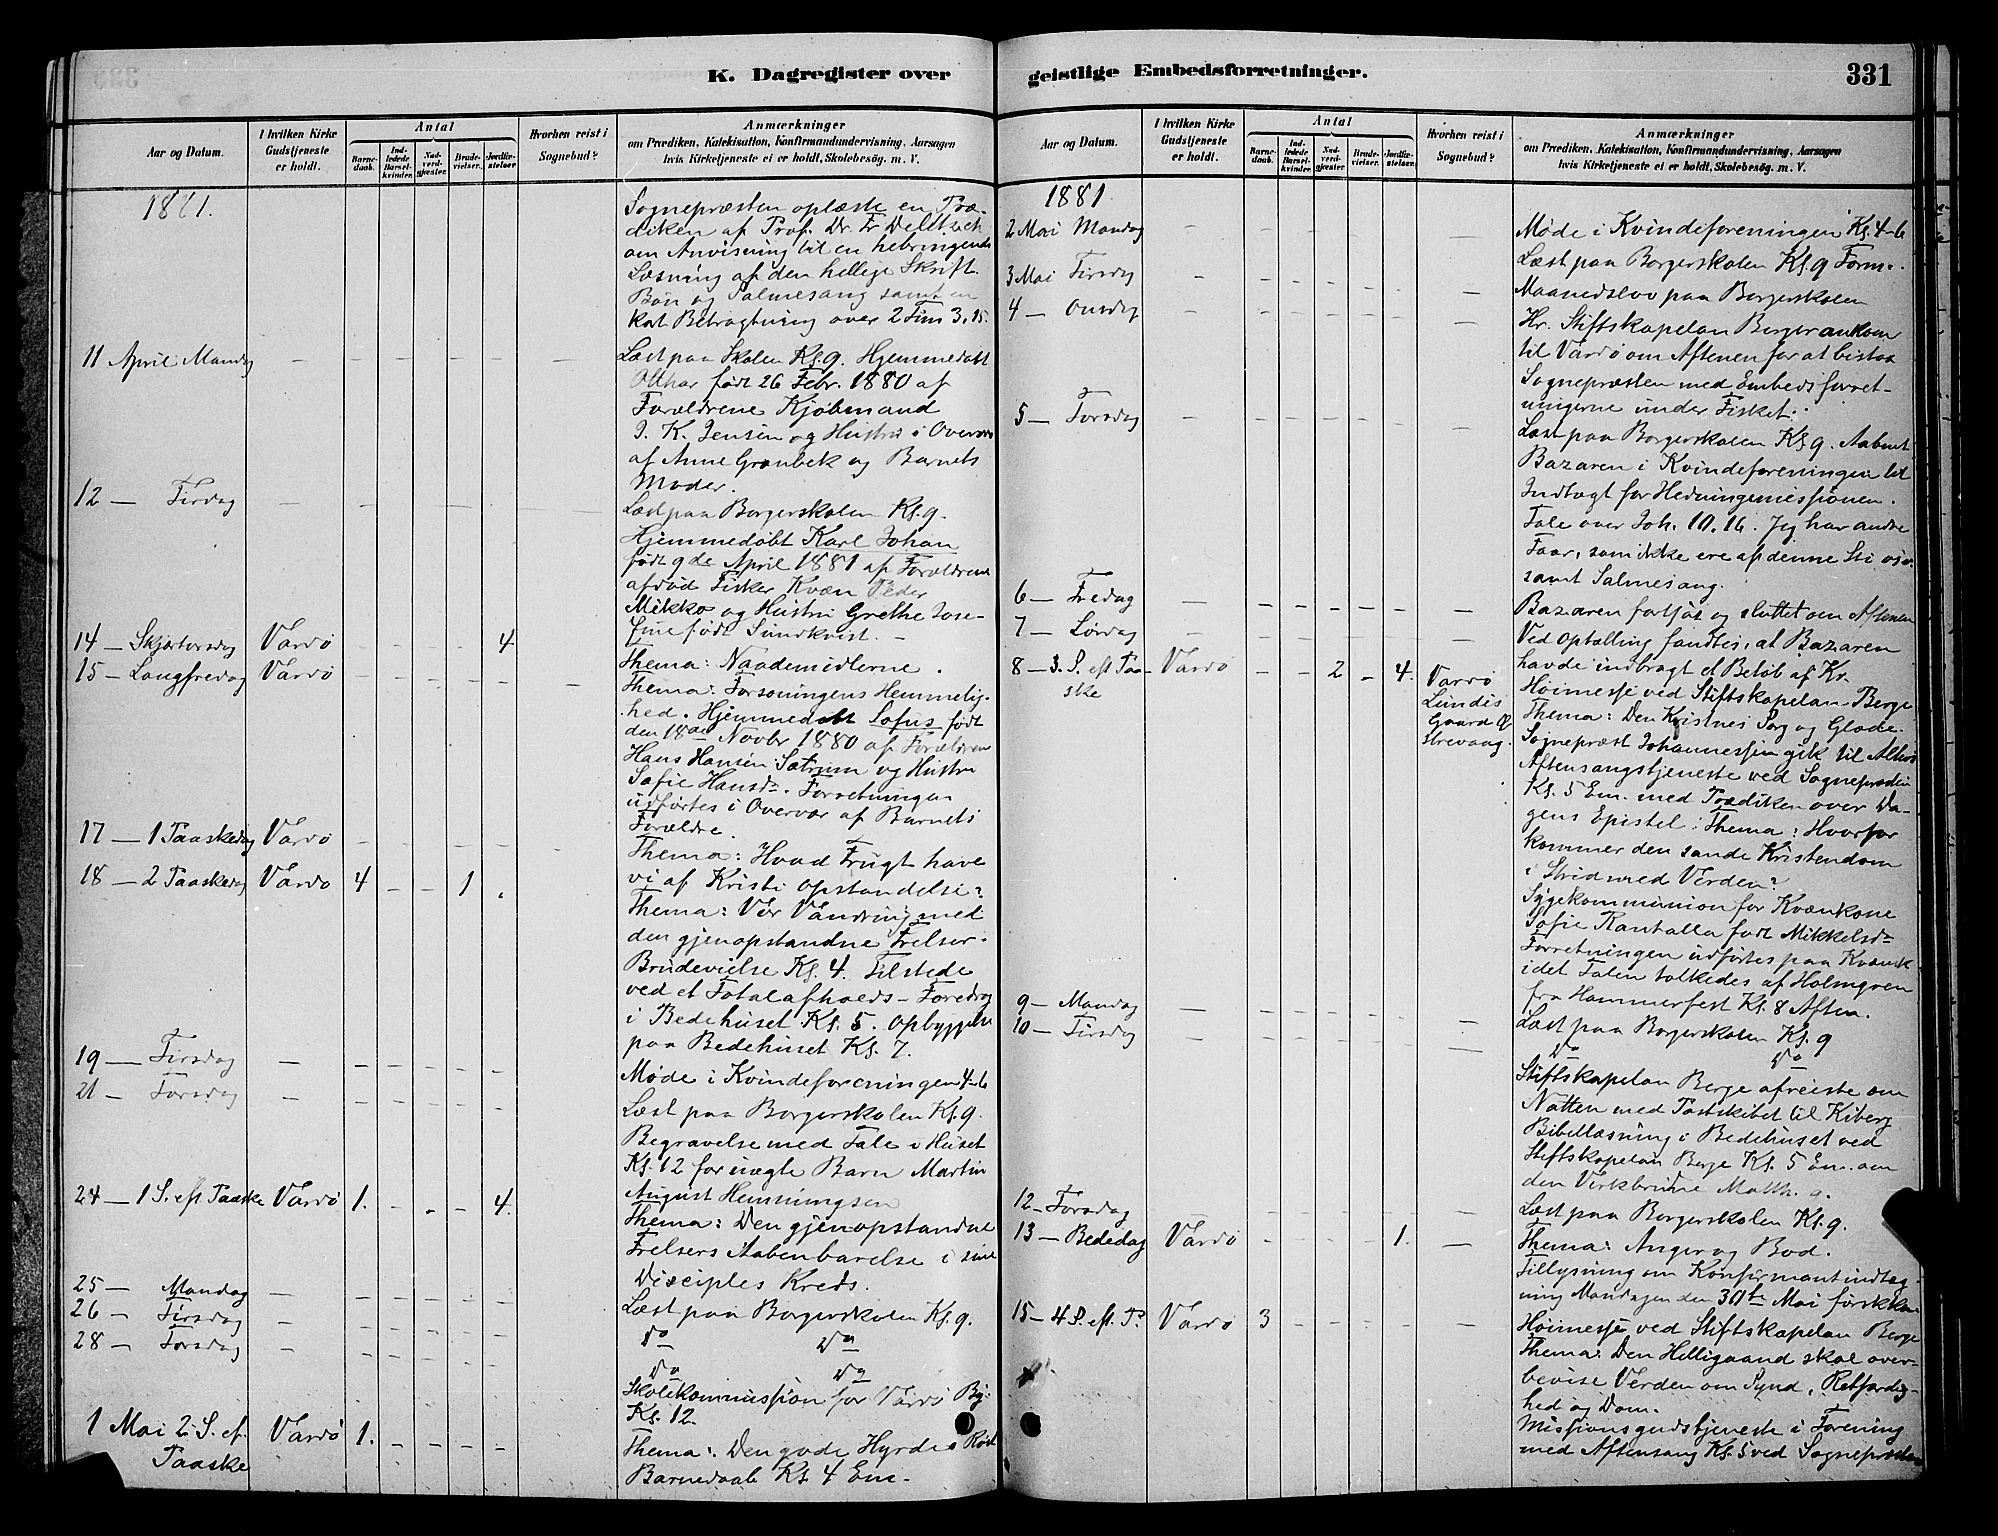 K. Dagregister over
Aar og Datum.
I hvilken Kirke Gudstjeneste er holdt.
Antal
Barnedaab.
Indledede Barselkvinder.
Nadverdgjæster.
Brudevielser.
Jordfæstelser.
Hvorhen reist i Sognebud?
Anmærkninger
om Prædiken, Katekisation, Konfirmandundervisning, Aarsagen
hvis Kirketjeneste ei er holdt, Skolebesøg. m. V.
1881.
Sognepræsten oplæste en Præ-
diken af Prof. Dr. Fr Delitzsch
om Anvisning til en
Læsning af den hellige Skrift.
Bøn og Salmesang samt en
kort Betragtning over 2 Tim 3, 15.
11 April Mandag
Læst paa Skolen Kl. 9. Hjemmedøbt
Otthar født 26 Febr. 1880 af
Forældrene Kjøbmand
J. K. Jensen og Hustru i Overvær
af Anne Grønbek og Barnets
Moder.
12 — Tirsdag
Læst paa Borgerskolen Kl. 9.
Hjemmedøbt Karl Johan
født 9de April 1881 af Forældrene
afdød Fisker Kvæn Peder
Mikko og Hustru Grethe Jose-
fine født Sundkvist. —
14 — Skjærtorsdag Vardø 4
Thema: Naademidlerne.
15 — Langfredag Vardø
Thema: Forsoningens Hemmelig-
hed. Hjemmedøbt Sofus født
den 18de Novbr 1880 af Forældrene
Hans Hansen Sætrum og Hustru
Sofie Hansdr. Forretningen
udførtes i Overvær af Barnets
Forældre.
17 — 1 Paaskedag Vardø
Thema: Hvad Frugt have
vi af Kristi Opstandelse?
18 — 2 Paaskedag Vardø 4 1
Thema: Vor Vandring med
den gjenopstandne Frelser.
Brudevielse Kl. 4. Tilstede
ved et Totalafholds-Foredrag
i Bedehuset Kl. 5. Opbyggelse
paa Bedehuset Kl. 7.
19 — Tirsdag
Møde i Kvindeforeningen 4-6
21 — Torsdag
Læst paa Borgerskolen Kl. 9.
Begravelse med Tale i Huset
Kl. 12 for uægte Barn Martin
August Hemmingsen
24 — 1 S. eft Paaske Vardø 1. 4.
Thema: Den gjenopstandne
Frelsers Aabenbarelse i sine
Disciples Kreds.
25 — Mandag
Læst paa Borgerskolen Kl. 9.
26 — Tirsdag
Do Do
28 — Torsdag
Do Do
Skolekommission for Vardø By.
Kl. 12.
1 Mai 2 S. ef. Vardø 1.
Paaske
Thema: Den gode Hyrdes Røst
Barnedaab Kl 4 Em.
geistlige Embedsforretninger.
331
Aar og Datum.
I hvilken Kirke Gudstjeneste er holdt.
Antal
Barnedaab.
Indledede Barselkvinder.
Nadverdgjæster.
Brudevielser.
Jordfæstelser.
Hvorhen reist i Sognebud?
Anmærkninger
om Prædiken, Katekisation, Konfirmandundervisning, Aarsagen
hvis Kirketjeneste ei er holdt, Skolebesøg. m. V.
1881
2 Mai Mandag
Møde i Kvindeforeningen Kl. 4-6
3 Mai Tirsdag
Læst paa Borgerskolen Kl 9 Form.
4 — Onsdag
Maanedslov paa Borgerskolen
Hr. Stiftskapelan Berge ankom
til Vardø om Aftenen for at bistaa
Sognepræsten med Embedsforret-
ningerne under Fisket.
5 — Torsdag
Læst paa Borgerskolen Kl 9. Aabnet
Bazaren i Kvindeforeningen til
Indtægt for Hedningemissionen.
Tale over Joh. 10. 16. Jeg har andre
Faar, som ikke ere af denne Sti osv.
samt Salmesang.
6 — Fredag
Bazaren fortsat og sluttet om Aftenen
7 — Lørdag
Ved optælling fandtes, at Bazaren
havde indbragt et Beløb af Kr.
8 — 3. S. eft Paa- Vardø 2 4.
ske
Vardø
Lundis
Gaard
Strevang.
Høimesse ved Stiftskapelan Berge
Thema: Den Kristnes Sorg og Glæde.
Sognepræst Johannessen gik til Alters
Aftensangstjeneste ved Sognepræsten
Kl. 5 Em. med Prædiken over Da-
gens Epistel: Thema: Hvorfor
kommer den sande Kristendom
i Strid med Verden?
Sygekommunion for Kvænkone
Sofie Rantalla født Mikkelsdr
Forretningen udførtes paa Kvænsk
idet Talen tolkedes af Holmgren
fra Hammerfest Kl. 8 Aften.
9 — Mandag
Læst paa Borgerskolen Kl. 9
10 — Tirsdag
Do Do
Stiftskapelan Berge afreiste om
Natten med Postskibet til Kiberg
Bibellæsning i Bedehuset ved
Stiftskapelan Berge Kl. 5 Em. om
den Matth. 9.
12 — Torsdag
Læst paa Borgerskolen Kl. 9.
13 — Bededag Vardø 1.
Thema: Anger og Bod.
Tillysning om Konfirmantindtag-
ning Mandagen den 30te Mai
15 — 4 S. eft. P. Vardø 3
Høimesse ved Stiftskapelan Berge
Thema: Den Helligaand skal over-
bevise Verden om Synd, Retfærdig-
hed og Dom.
Missionsgudstjeneste i Forening
med Aftensang Kl. 5 ved Sognepræsten